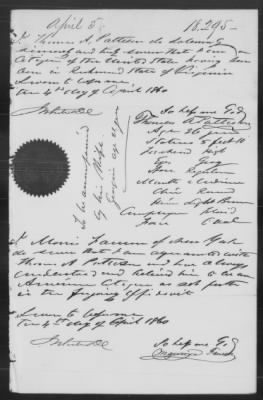 April 5
18,295
I Thomas A. Patterson do solemnly
and truly swear that I am a
Citizen of the United States having been
Born in Richmond State of Virginia
Sworn to before me
this 4th day of April 1860
So help me God
Thomas A Patterson
To be accompanied
by his Wife
Age 26 years
Stature 5 feet 10
Forehead High
Eyes Grey
Nose Regular
Mouth Medium
Chin Round
Hair Light Brown
Complexion
Face Oval
of New York
do swear that I am acquainted with
Thomas A. Patterson and have always
understood and believed him to be an
American Citizen as set forth
in the foregoing affidavit
Sworn to before me
this 4th day of April 1860
So help me God